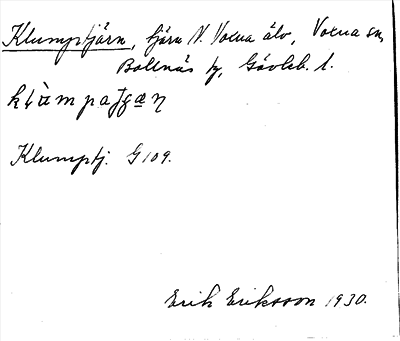 Klumptjärn, tjärn N. Voxna älv, Voxna sn,
Bollnäs kp, Gävleb. l.
klàmpaʃæɳ
Klumptj. G 109.
Erik Eriksson 1930.